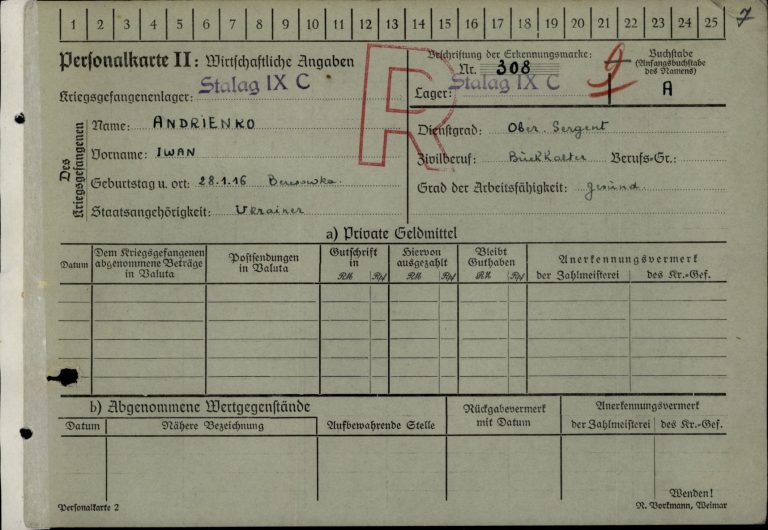 1 2 3 4 5 6 7 8 9 10 11 12 13 14 15 16 17 18 19 20 21 22 23 24 25
7
Personalkarte II: Wirtschaftliche Angaben
Kriegsgefangenenlager: Stalag IX C
R
Beschriftung der Erkennungsmarke:
Nr. 308
Lager: Stalag IX C
Buchstabe
(Anfangsbuchstabe
des Namens)
A
Des Kriegsgefangenen
Name: ANDRIENKO
Vorname: IWAN
Geburtstag u. ort: 28.1.16 Beresowka
Staatsangehörigkeit: Ukrainer
Dienstgrad: Ober. Sergent
Zivilberuf: Buckhalter Berufs-Gr.:
Grad der Arbeitsfähigkeit: gesund
a) Private Geldmittel
Datum
Dem Kriegsgefangenen
abgenommene Beträge
in Valuta
Postsendungen
in Valuta
Gutschrift
in
RM Rpf
Hiervon
ausgezahlt
RM Rpf
Bleibt
Guthaben
RM Rpf
Anerkennungsvermerk
der Zahlmeisterei des Kr.-Gef.
b) Abgenommene Wertgegenstände
Datum
Nähere Bezeichnung
Aufbewahrende Stelle
Rückgabevermerk
mit Datum
Anerkennungsvermerk
der Zahlmeisterei des Kr.-Gef.
Wenden!
Personalkarte 2
R. Borkmann, Weimar